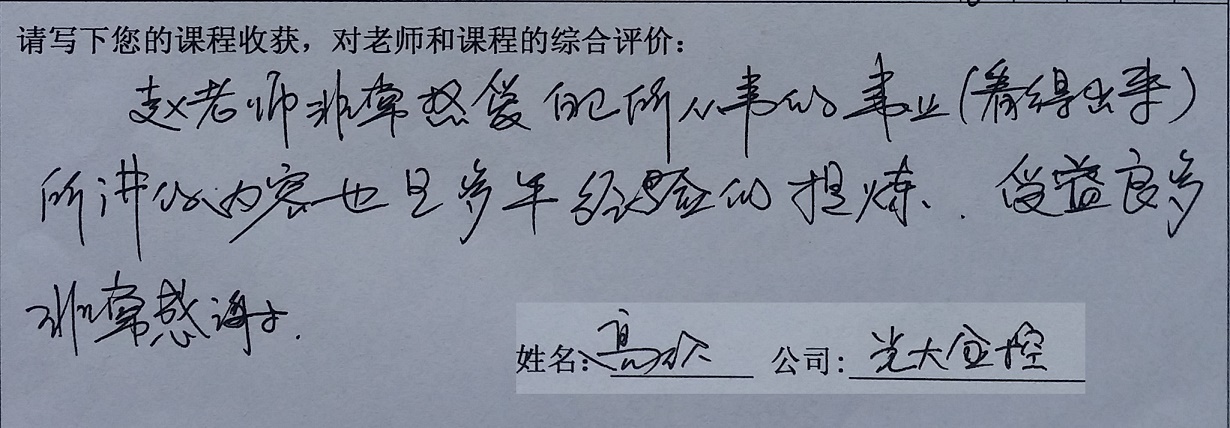 请写下您的课程收获，对老师和课程的综合评价：
赵老师非常热爱自己所从事的事业（看得出来）
所讲的内容也是多年经验的提炼．受益良多
非常感谢．
姓名：高 公司：光大金控